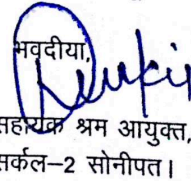 भवदीया,
सहायक श्रम आयुक्त,
सर्कल–2 सोनीपत।